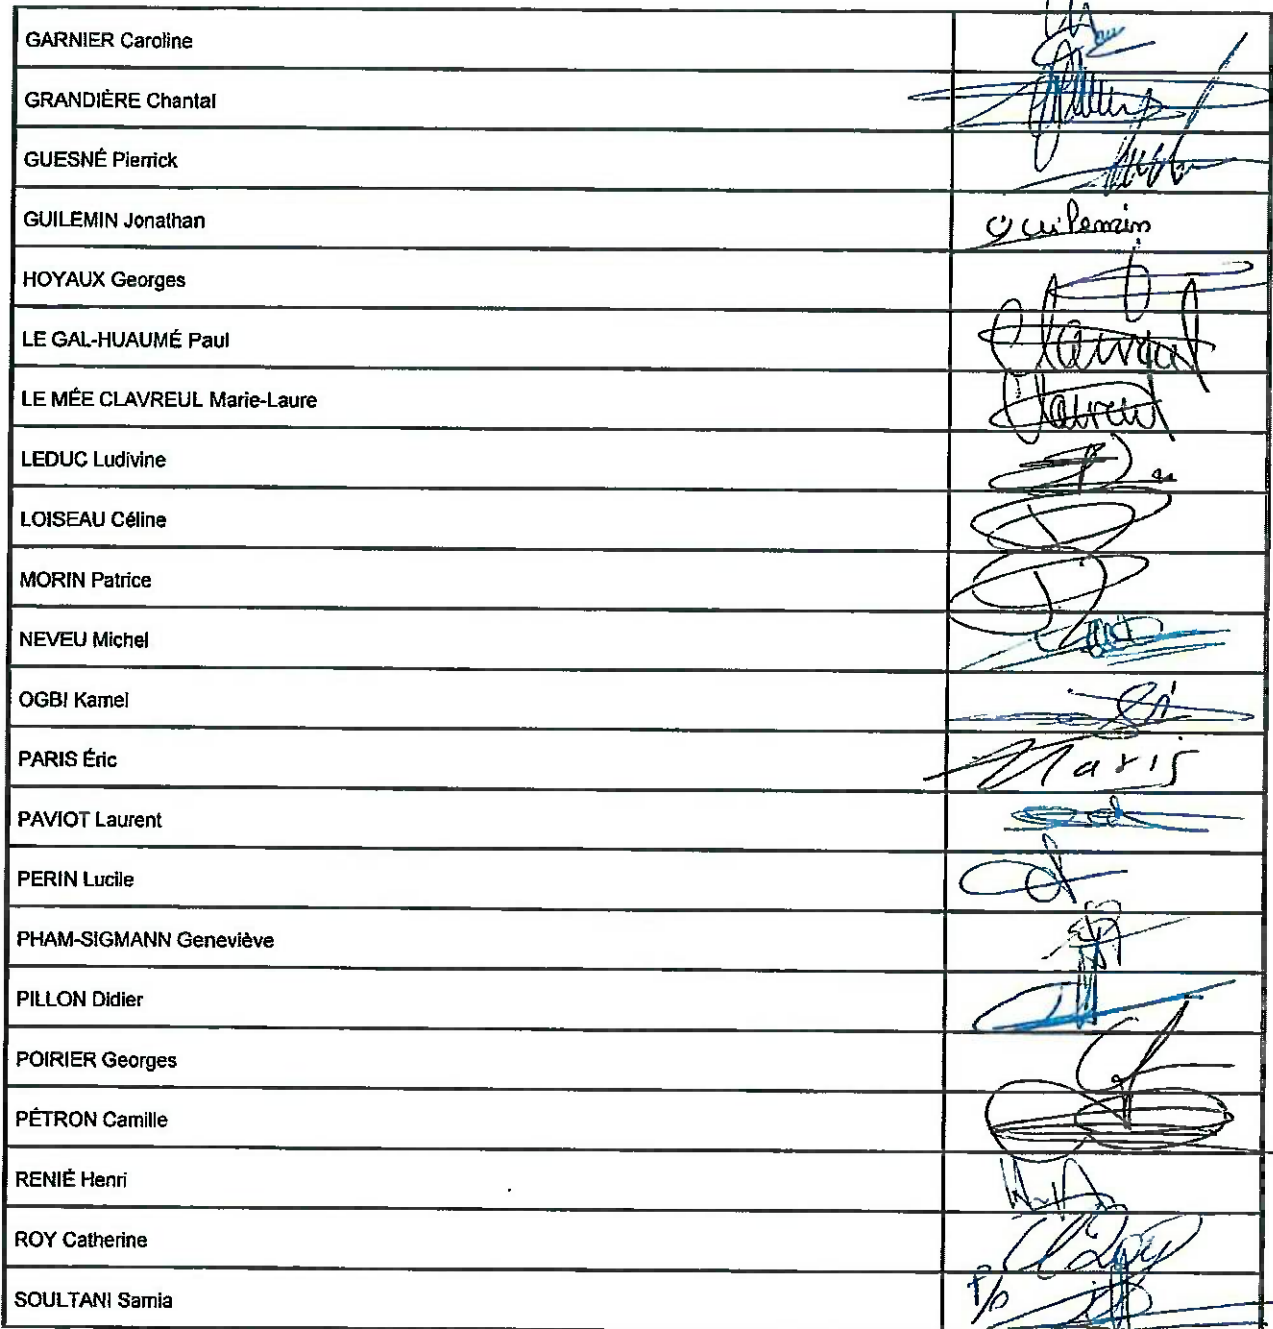 GARNIER Caroline
GRANDIÈRE Chantal
GUESNÉ Pierrick
GUILEMIN Jonathan Guilemin
HOYAUX Georges
LE GAL-HUAUMÉ Paul Clavreul
LE MÉE CLAVREUL Marie-Laure Clavreul
LEDUC Ludivine
LOISEAU Céline
MORIN Patrice
NEVEU Michel
OGBI Kamel
PARIS Éric Paris
PAVIOT Laurent
PERIN Lucile
PHAM-SIGMANN Geneviève
PILLON Didier
POIRIER Georges
PÉTRON Camille
RENIÉ Henri
ROY Catherine
SOULTANI Samia P/o